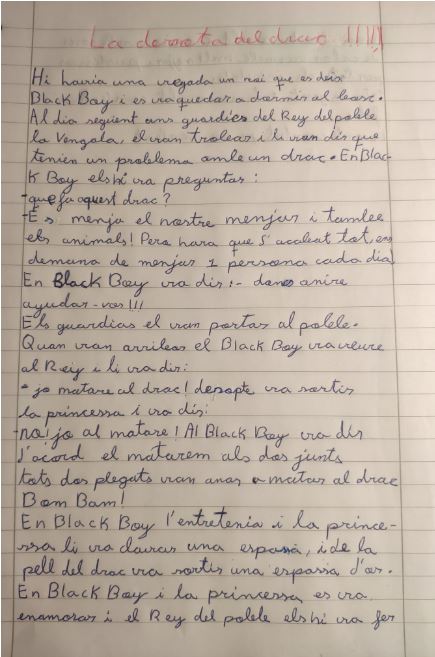 La derrota del drac !!!!
Hi havia una vegada un noi que es deia
Black Boy i es va quedar a dormir al bosc.
Al dia següent uns guardies del Rey del poble
la Vengala, el van trobar i li van dis que
tenien un problema amb un drac. En Blac-
k Boy els hi va preguntar:
-que fa aquest drac?
-Es menja el nostre menjar i tambe
els animals! Pero hara que s'acabat tot, ens
demana de menjar 1 persona cada dia
En Black Boy va dir:- dons anire
ayudar-vos!!!
Els guardias el van portar al poble.
Quan van arribar el Black Boy va veure
al Reiy i li va dir:
- jo matare al drac! desopte va sortir
la princessa i va dir:
-no! jo al matare! Al Black Boy va dir
d'acord el matarem als dos junts
tots dos plegats van anar a matar al drac
Bom Bam!
En Black Boy l'entretenia i la prince-
ssa li va clavar una espasa, i de la
pell del drac va sortir una espassa d'or.
En Black Boy i la princessa es va
enamorar i el Rey del poble els hi va fer